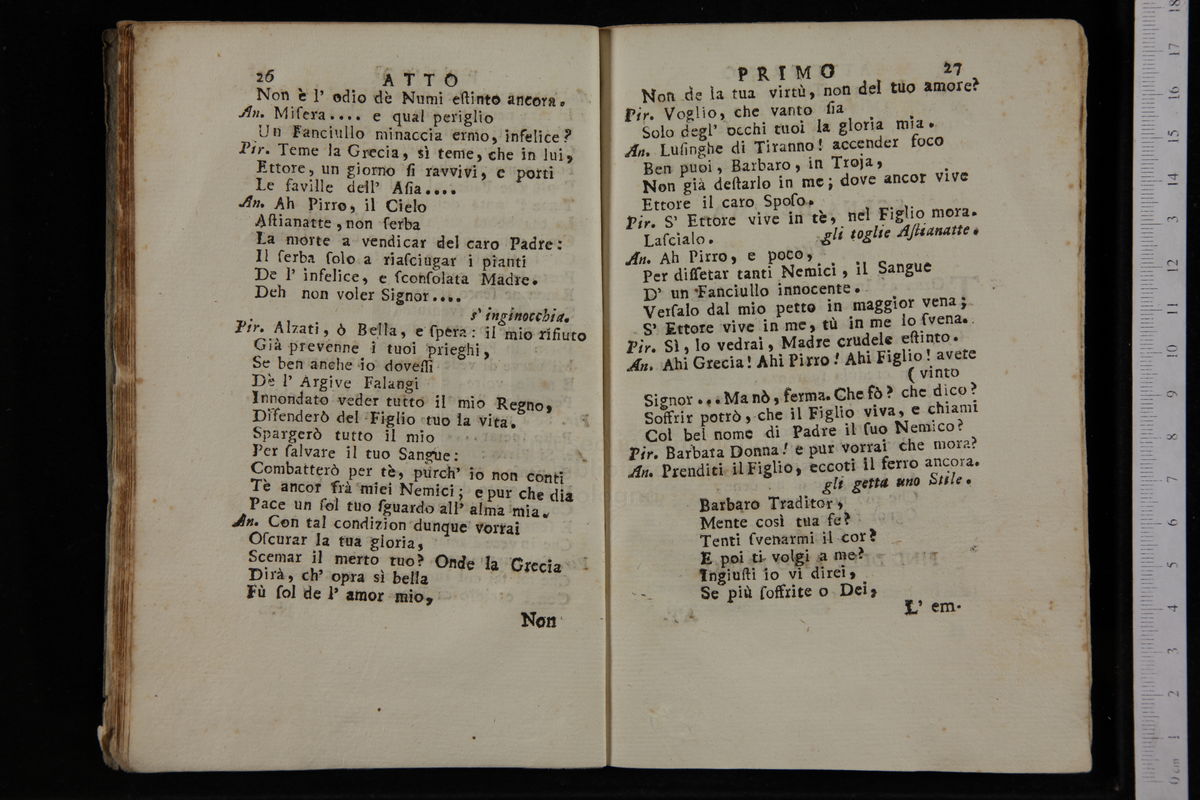 26 ATTO
Non è l' odio dè Numi eſtinto ancora.
An. Miſera.... e qual periglio
Un Fanciullo minaccia ermo, infelice?
Pir. Teme la Grecia, sì teme, che in lui,
Ettore, un giorno ſi ravvivi, e porti
Le faville dell' Aſia....
An. Ah Pirro, il Cielo
Aſtianatte, non ſerba
La morte a vendicar del caro Padre:
Il ſerba ſolo a riaſciugar i pianti
De l' infelice, e ſconſolata Madre.
Deh non voler Signor....
s' inginocchia.
Pir. Alzati, ò Bella, e ſpera: il mio rifiuto
Già prevenne i tuoi prieghi,
Se ben anche io doveſſi
Dè l' Argive Falangi
Innondato veder tutto il mio Regno,
Difenderò del Figlio tuo la vita.
Spargerò tutto il mio
Per ſalvare il tuo Sangue:
Combatterò per tè, purch' io non conti
Tè ancor frà miei Nemici; e pur che dia
Pace un ſol tuo ſguardo all' alma mia.
An. Con tal condizion dunque vorrai
Oſcurar la tua gloria,
Scemar il merto tuo? Onde la Grecia
Dirà, ch' opra sì bella
Fù ſol de l' amor mio,
Non
PRIMO 27
Non de la tua virtù, non del tuo amore?
Pir. Voglio, che vanto ſia
Solo degl' occhi tuoi la gloria mia.
An. Luſinghe di Tiranno! accender foco
Ben puoi, Barbaro, in Troja,
Non già deſtarlo in me; dove ancor vive
Ettore il caro Spoſo.
Pir. S' Ettore vive in tè, nel Figlio mora.
Laſcialo. gli toglie Aſtianatte.
An. Ah Pirro, e poco,
Per diſſetar tanti Nemici, il Sangue
D' un Fanciullo innocente.
Verſalo dal mio petto in maggior vena;
S' Ettore vive in me, tù in me lo ſvena.
Pir. Sì, lo vedrai, Madre crudele eſtinto.
An. Ahi Grecia! Ahi Pirro! Ahi Figlio! avete
( vinto
Signor... Ma nò, ferma. Che fò? che dico?
Soffrir potrò, che il Figlio viva, e chiami
Col bel nome di Padre il ſuo Nemico?
Pir. Barbara Donna! e pur vorrai che mora?
An. Prenditi il Figlio, eccoti il ferro ancora.
gli getta uno Stile.
Barbaro Traditor,
Mente così tua fe?
Tenti ſvenarmi il cor?
E poi ti volgi a me?
Ingiuſti io vi direi,
Se più ſoffrite o Dei,
L' em-
0 cm 1 2 3 4 5 6 7 8 9 10 11 12 13 14 15 16 17 18